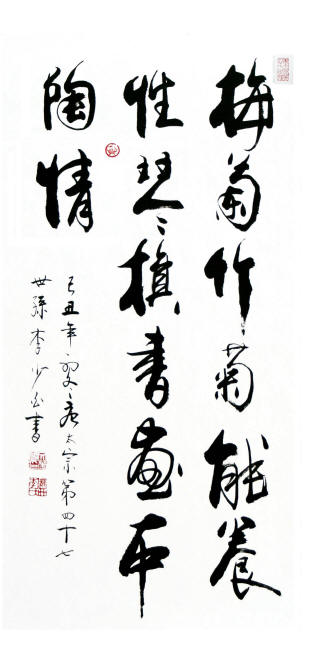 梅蘭竹菊能養
性琴棋書畫亦
陶情
己丑年夏唐太宗第四十七
世孫李少白書